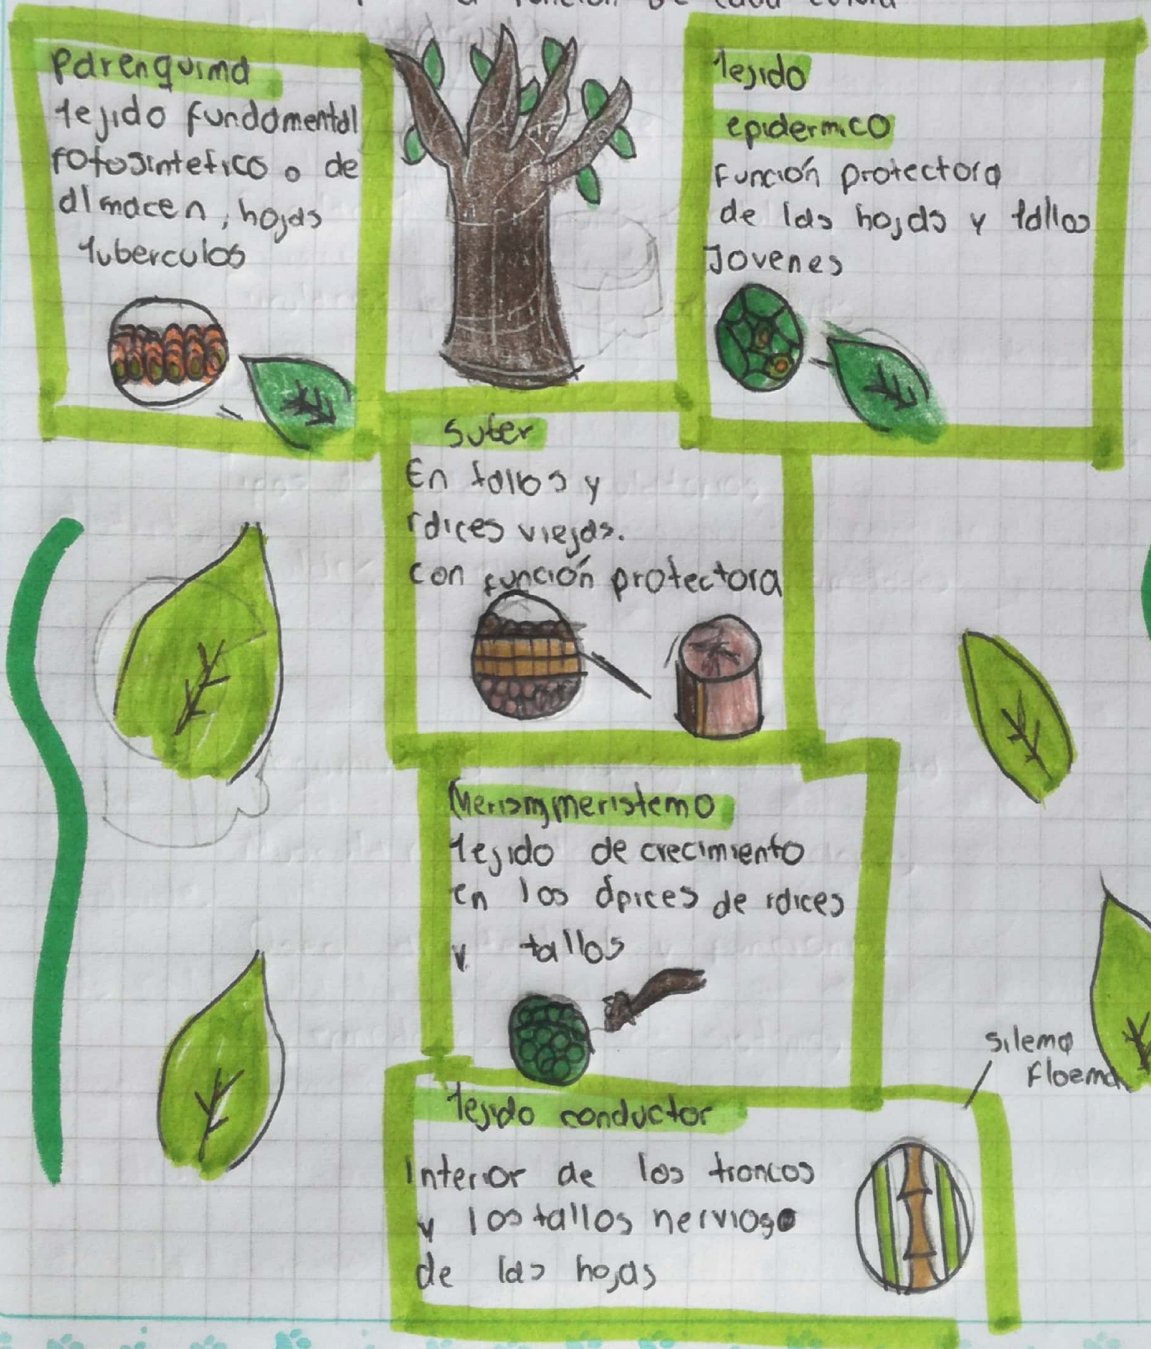 función de cada
Parenquima
tejido fundamental
fotosintetico o de
almacen, hojas
tuberculos
tejido
epidermico
función protectora
de las hojas y tallos
Jovenes
suter
En tallos y
raices viejas.
con función protectora
meristemo
tejido de crecimiento
en los ápices de raices
y tallos
silema
floema
tejido conductor
Interior de los troncos
y los tallos nervioso
de las hojas